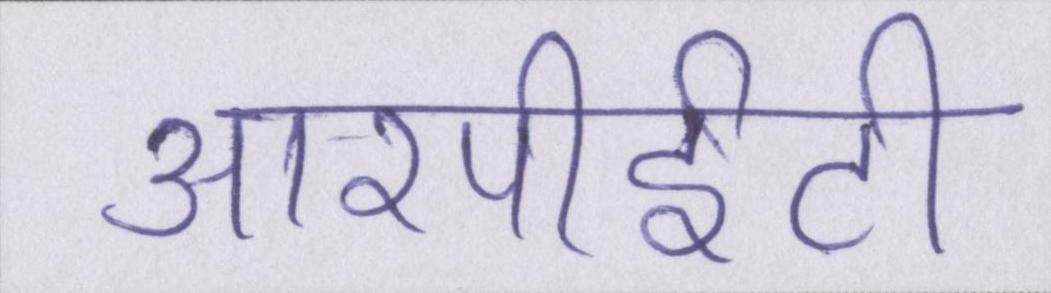 आरपीईटी